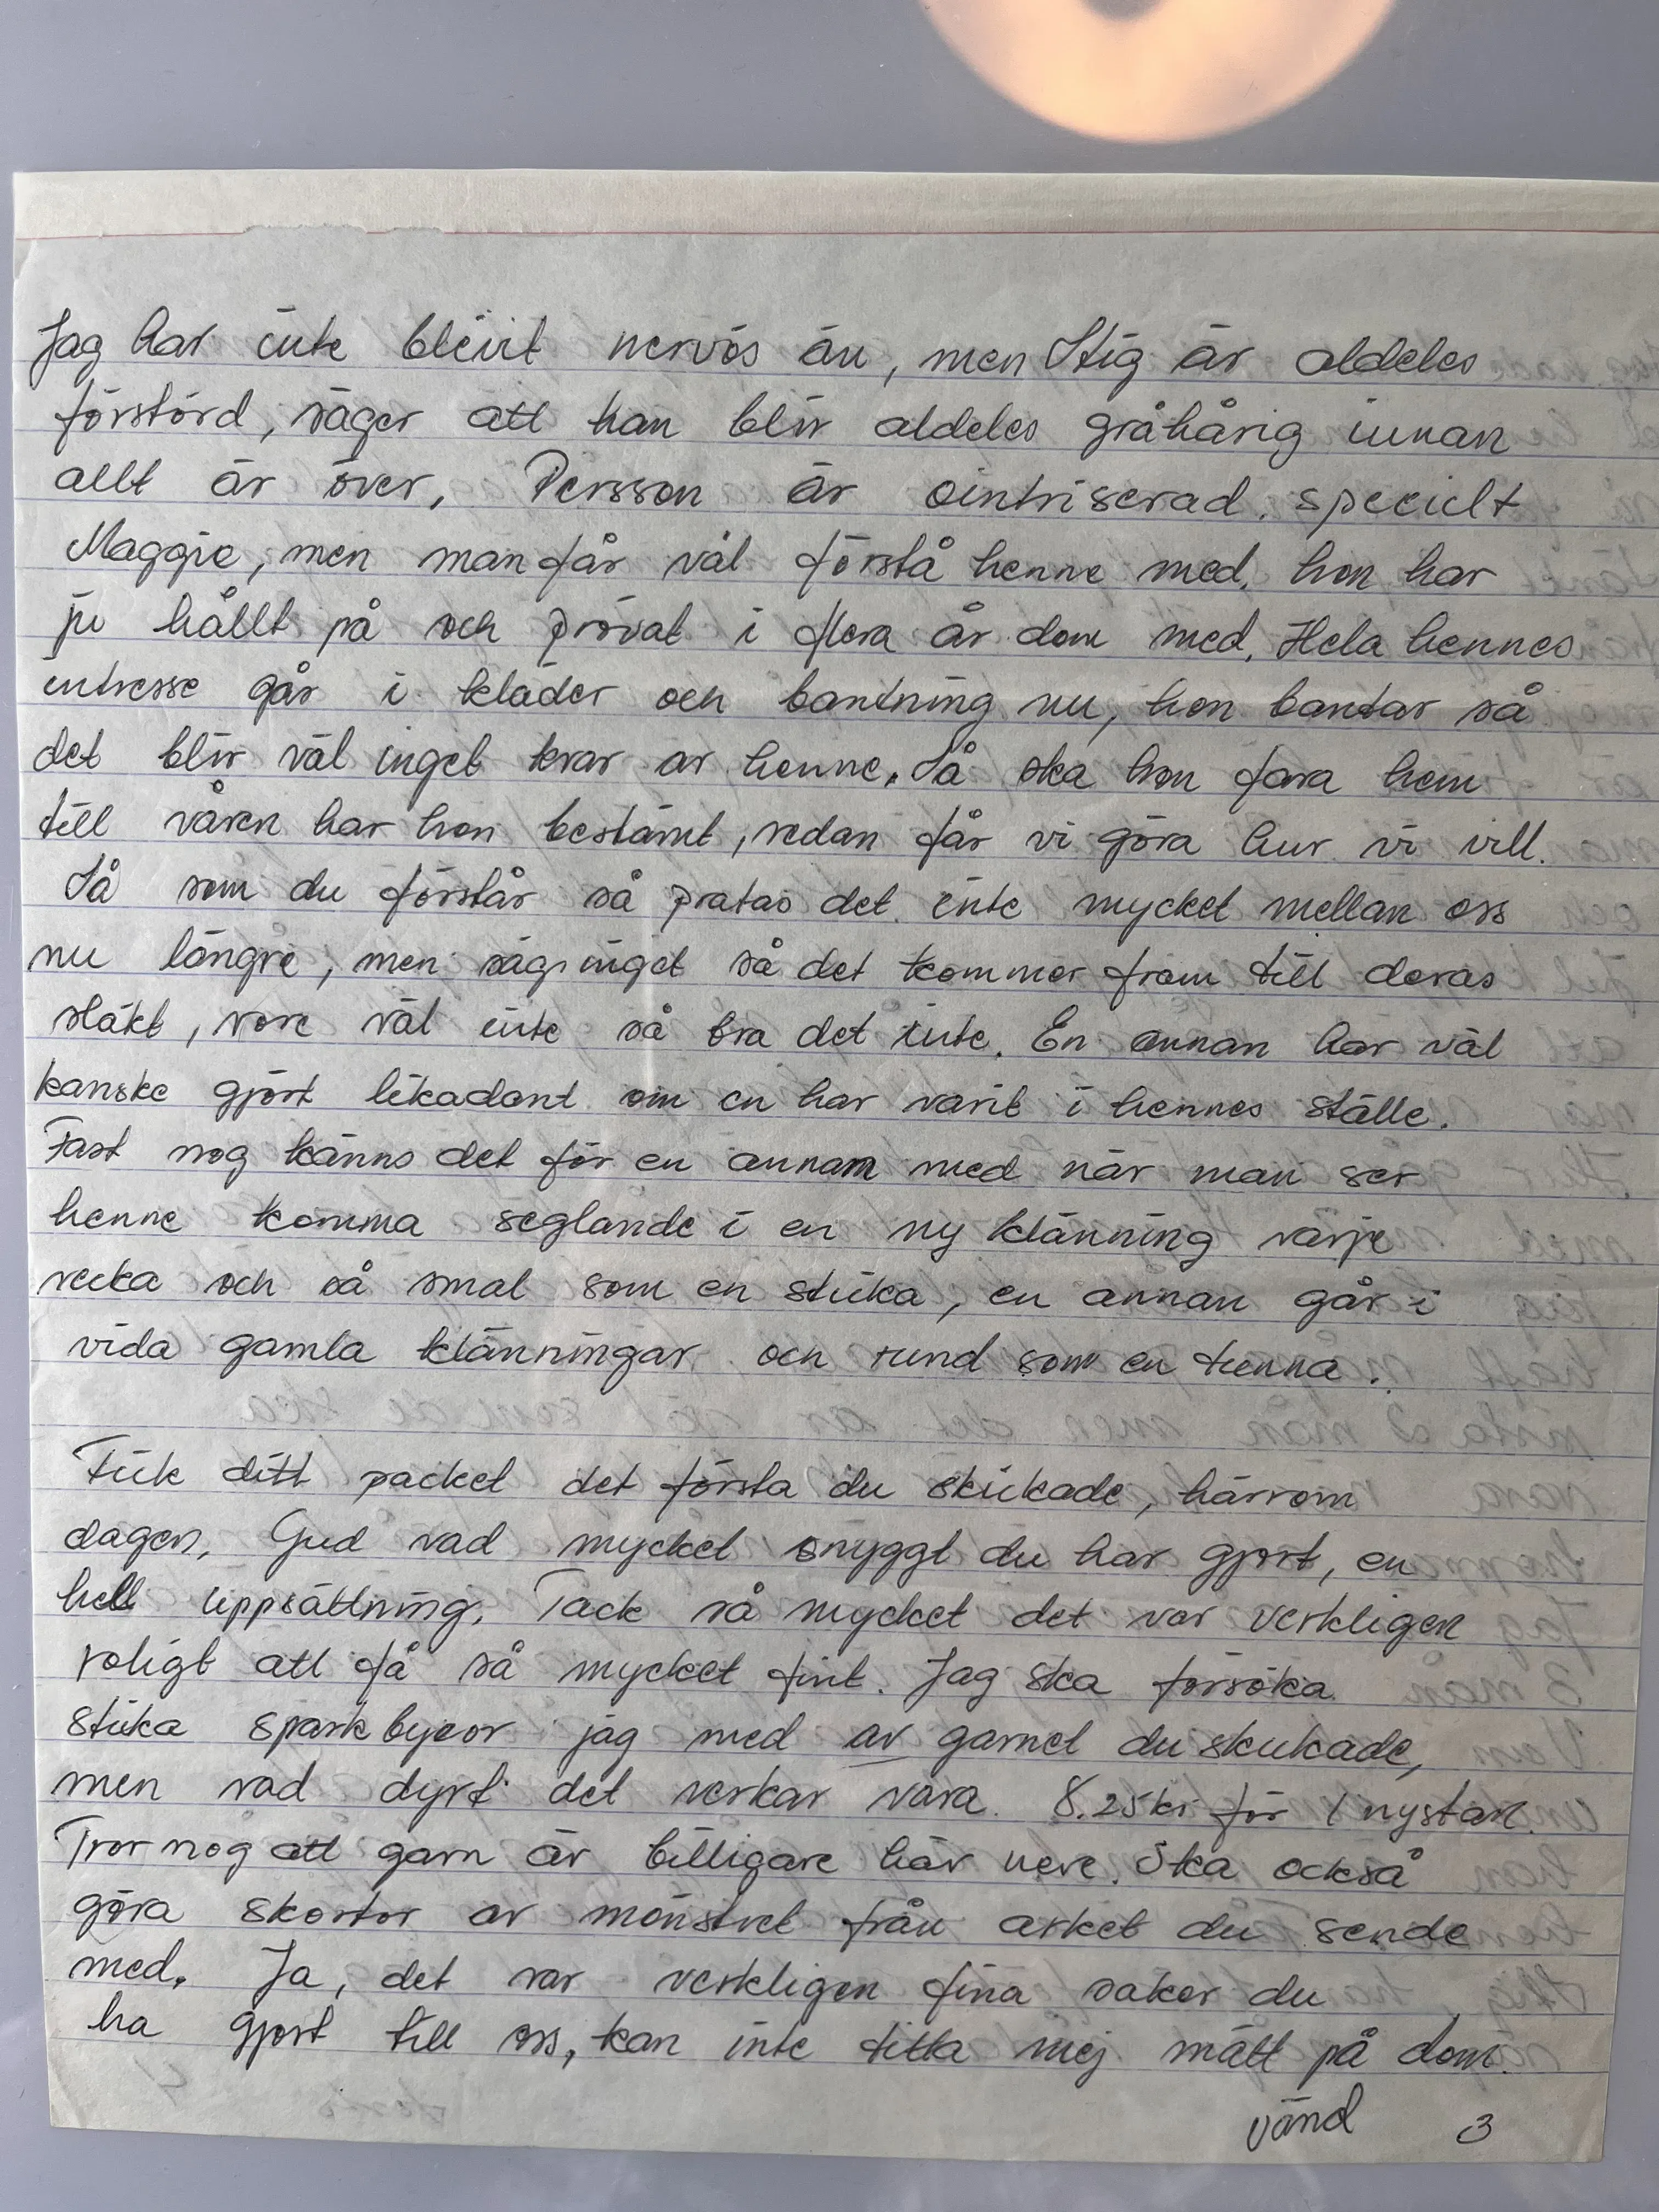 Jag har inte blivit nervös än, men Stig är aldeles
förstörd, säger att han blir aldeles gråhårig innan
allt är över, Persson är ointriserad. speciellt
Maggie, men man får väl förstå henne med, hon har
ju hållt på och prövat i flera år dom med. Hela hennes
intresse går i kläder och bantning nu, hon bantar så
det blir väl inget kvar av henne. Så ska hon fara hem
till våren har hon bestämt, sedan får vi göra hur vi vill.
Så som du förstår så pratas det inte mycket mellan oss
nu längre, men säg inget så det kommer fram till deras
släkt, vore väl inte så bra det inte. En annan har väl
kanske gjort likadant om en har varit i hennes ställe.
Fast nog känns det för en annan med när man ser
henne komma seglande i en ny klänning varje
vecka och så smal som en sticka, en annan går i
vida gamla klänningar och rund som en tunna.
Fick ditt packet det första du skickade, härrom
dagen, Gud vad mycket snyggt du har gjort, en
hell uppsättning. Tack så mycket det var verkligen
roligt att få så mycket fint. Jag ska försöka
sticka sparkbyxor jag med av garnet du skickade,
men vad dyrt det verkar vara. 8.25kr för 1 nystan.
Tror nog att garn är billigare här nere. Ska också
göra skortor av mönstret från arket du sende
med. Ja, det var verkligen fina saker du
ha gjort till oss, kan inte titta mej mätt på dom.
vänd 3